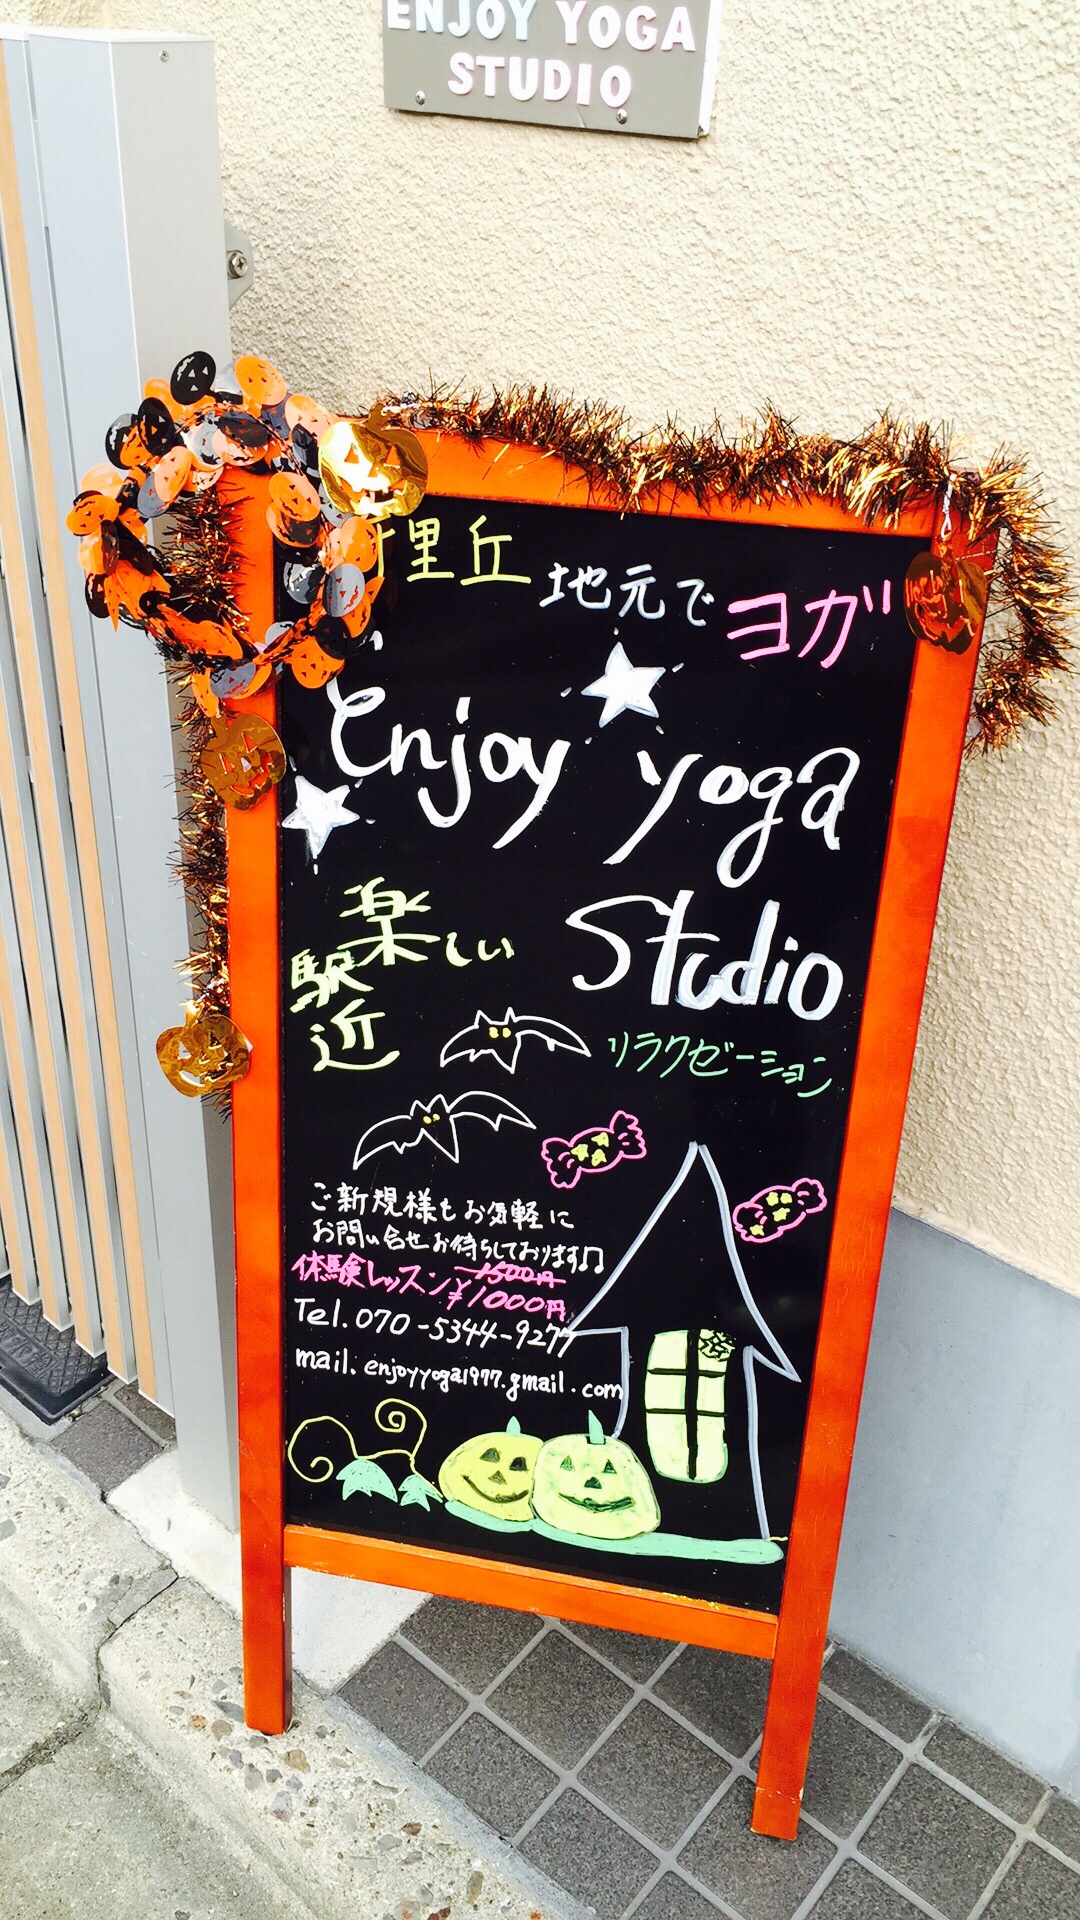 ENJOY YOGA
STUDIO
里丘 地元で ヨガ
enjoy yoga
Studio
楽しい
駅近
リラクゼーション
ご新規様もお気軽に
お問い合せお待ちしております♫
体験レッスン 1500円 ¥1000円
Tel.070-5344-9277
mail.enjoyyoga1977.gmail.com